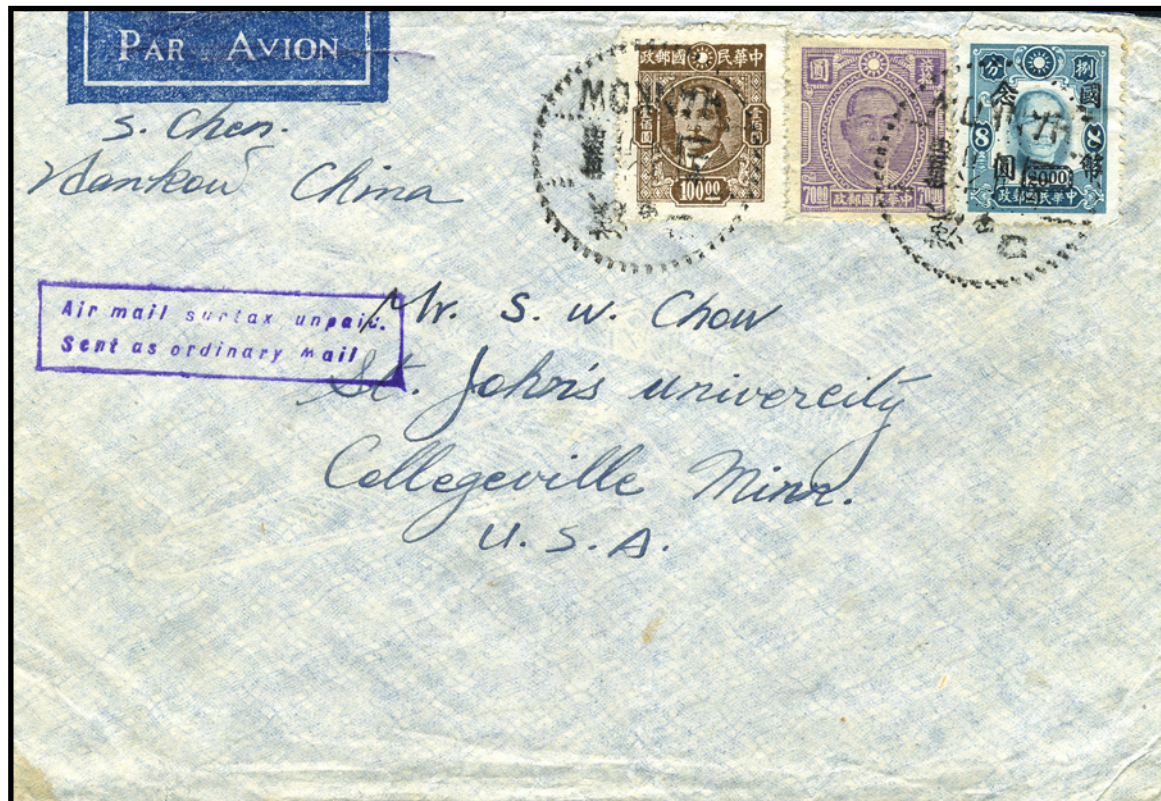 PAR AVION
S. Chen.
Hankow China
中華民國郵政
壹佰圓 壹佰圓
100.00
圓
70.00 中華民國郵政 70.00
捌 分
國幣 念圓
8 8
中華民國郵政
Air mail surtax unpaid.
Sent as ordinary Mail
Mr. S. W. Chow
St. John's univercity
Collegeville Minn.
U. S. A.